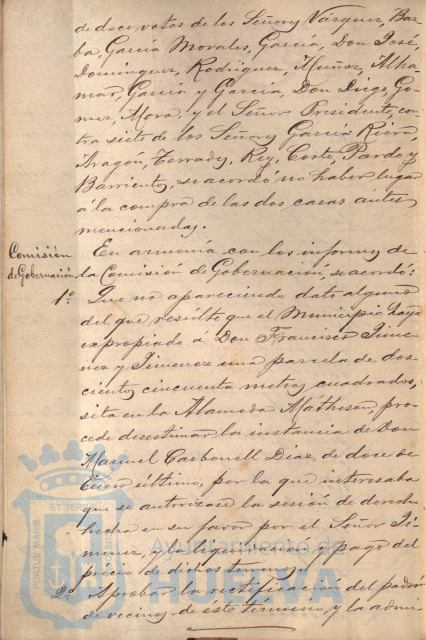 de doce votos de los Señores Vázquez, Bar-
ba, García Morales, García, Don José,
Dominguez, Rodriguez, Muñoz, Alha-
mar, García y García, Don Diego, Go-
mez, Mora, y el Señor Presidente, con-
tra siete de los Señores García Riera,
Aragon, Terrady, Rey, Corte, Pardo y
Barrientos, se acordó no haber lugar
á la compra de las dos casas antes
mencionadas.
Comisión
de Gobernación
En armonía con los informes de
la Comisión de Gobernación, se acordó:
1º Que no apareciendo dato alguno
del que resulte que el Municipio haya
expropiado á Don Francisco Jime-
nez y Jimenez una parcela de dos-
cientos cincuenta metros cuadrados,
sita en la Alameda Mátheson, pro-
cede desestimar la instancia de Don
Manuel Carbonell Diaz, de doce de
Enero último, por la que interesaba
que se autorizase la sesión de derechos
hecha en su favor por el Señor Ji-
menez, y la liquidación y pago del
précio de dichos terrenos.
2º Aprobar la rectificación del padrón
de vecinos de este termino, y la admi-
PORTUS MARIS ET TERRÆ
Ayuntamiento de
HUELVA